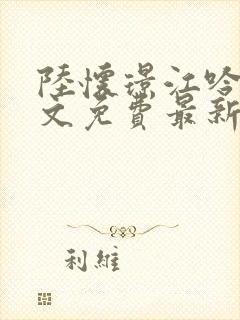 陸懷璟江吟
文免費最新
利維